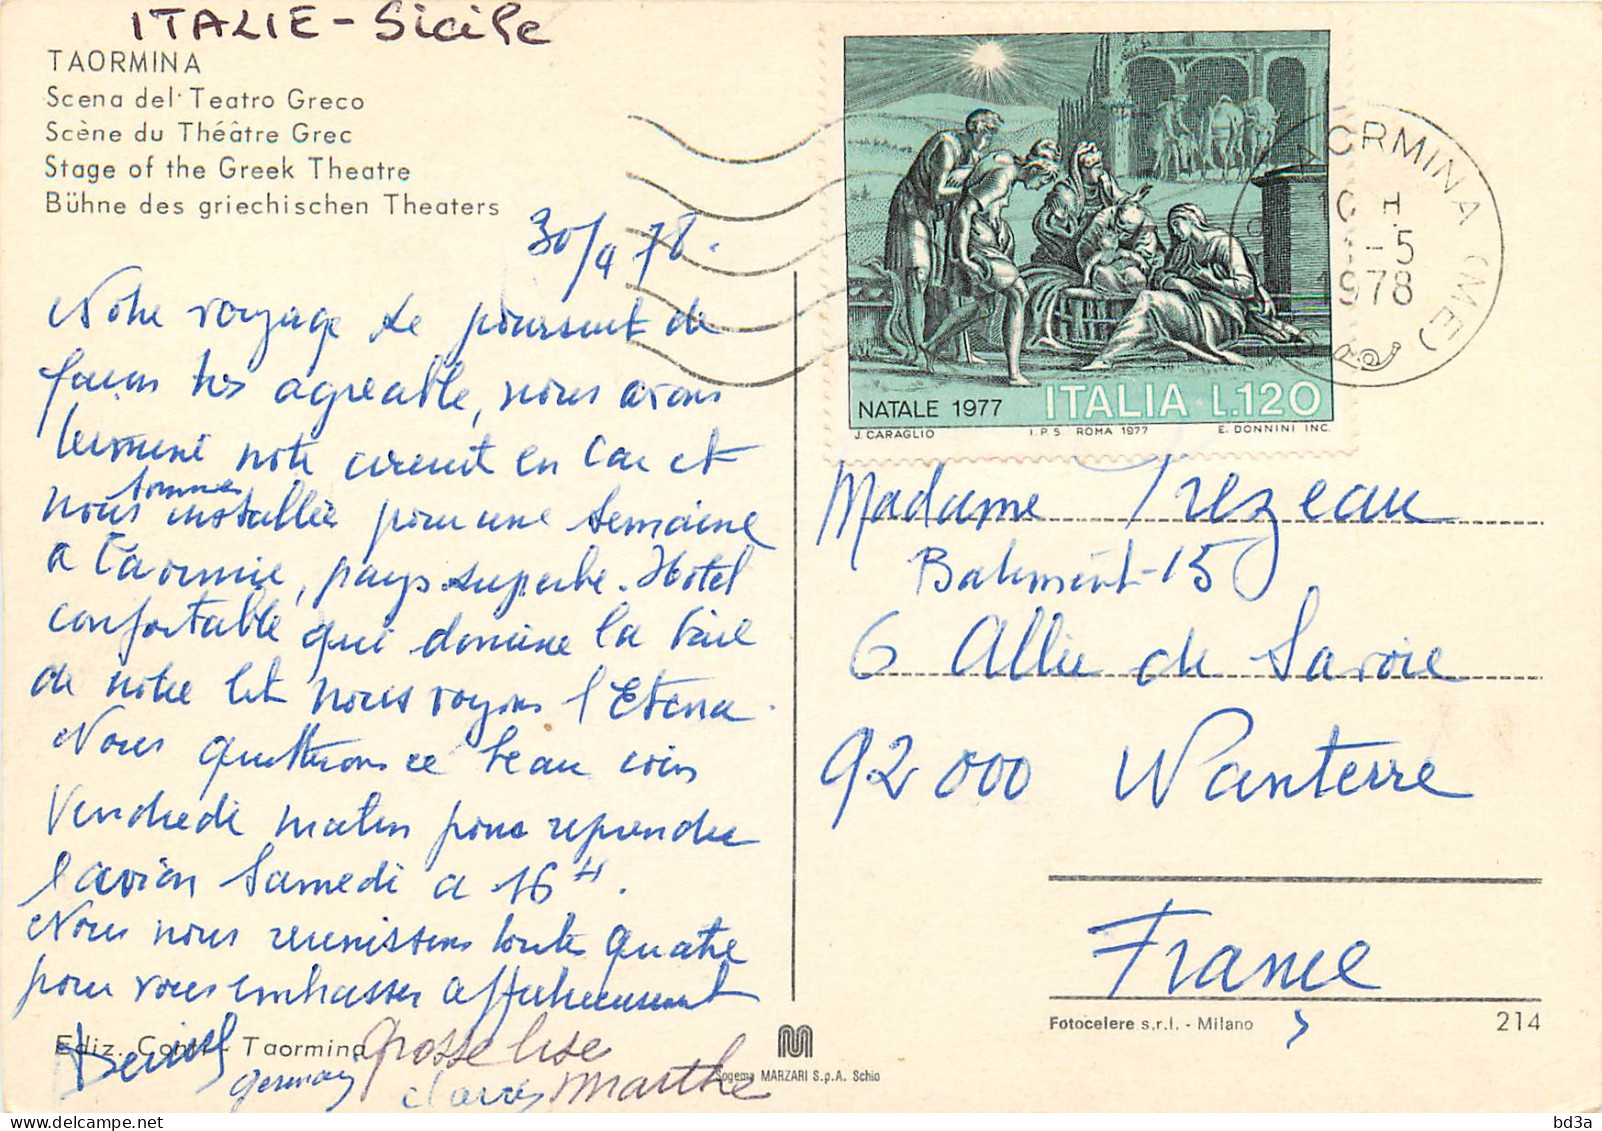 ITALIE - Sicile
TAORMINA
Scena del Teatro Greco
Scène du Théâtre Grec
Stage of the Greek Theatre
Bühne des griechischen Theaters
30/4 78.
Notre voyage se poursuit de
façon très agréable, nous avons
terminé notre circuit en car et
nous sommes installée pour une semaine
a Taormie, pays superbe. Hotel
confortable qui domine la
de notre lit nous voyons l'Etena.
Nous quitterons ce beau coin
Vendredi matin pour reprendre
l'avion Samedi a 16H.
Nous nous reunissons toute quatre
pour vous embrasser affectueusement
Denise
germany
grosse bise
Marthe
Ediz. Conti - Taormina
NATALE 1977 ITALIA L.120
J. CARAGLIO I.P.S. ROMA 1977 E. DONNINI INC.
TAORMINA (ME)
H
-5
1978
Madame Trezeau
Batiment-15
6 Allée de Savoie
92000 Nanterre
France
Fotocelere s.r.l. - Milano 214
M
Sogema MARZARI S.p.A. Schio
bd3a